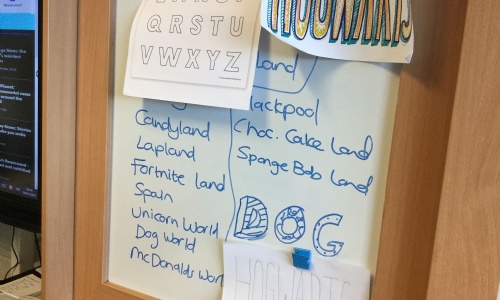 QRSTU
VWXYZ
HOGWARTS
Land
Blackpool
Choc. Cake Land
Sponge Bob Land
Candyland
Lapland
Fortnite Land
Spain
Unicorn World
Dog World
McDonalds Worl
DOG
HOGWARTS